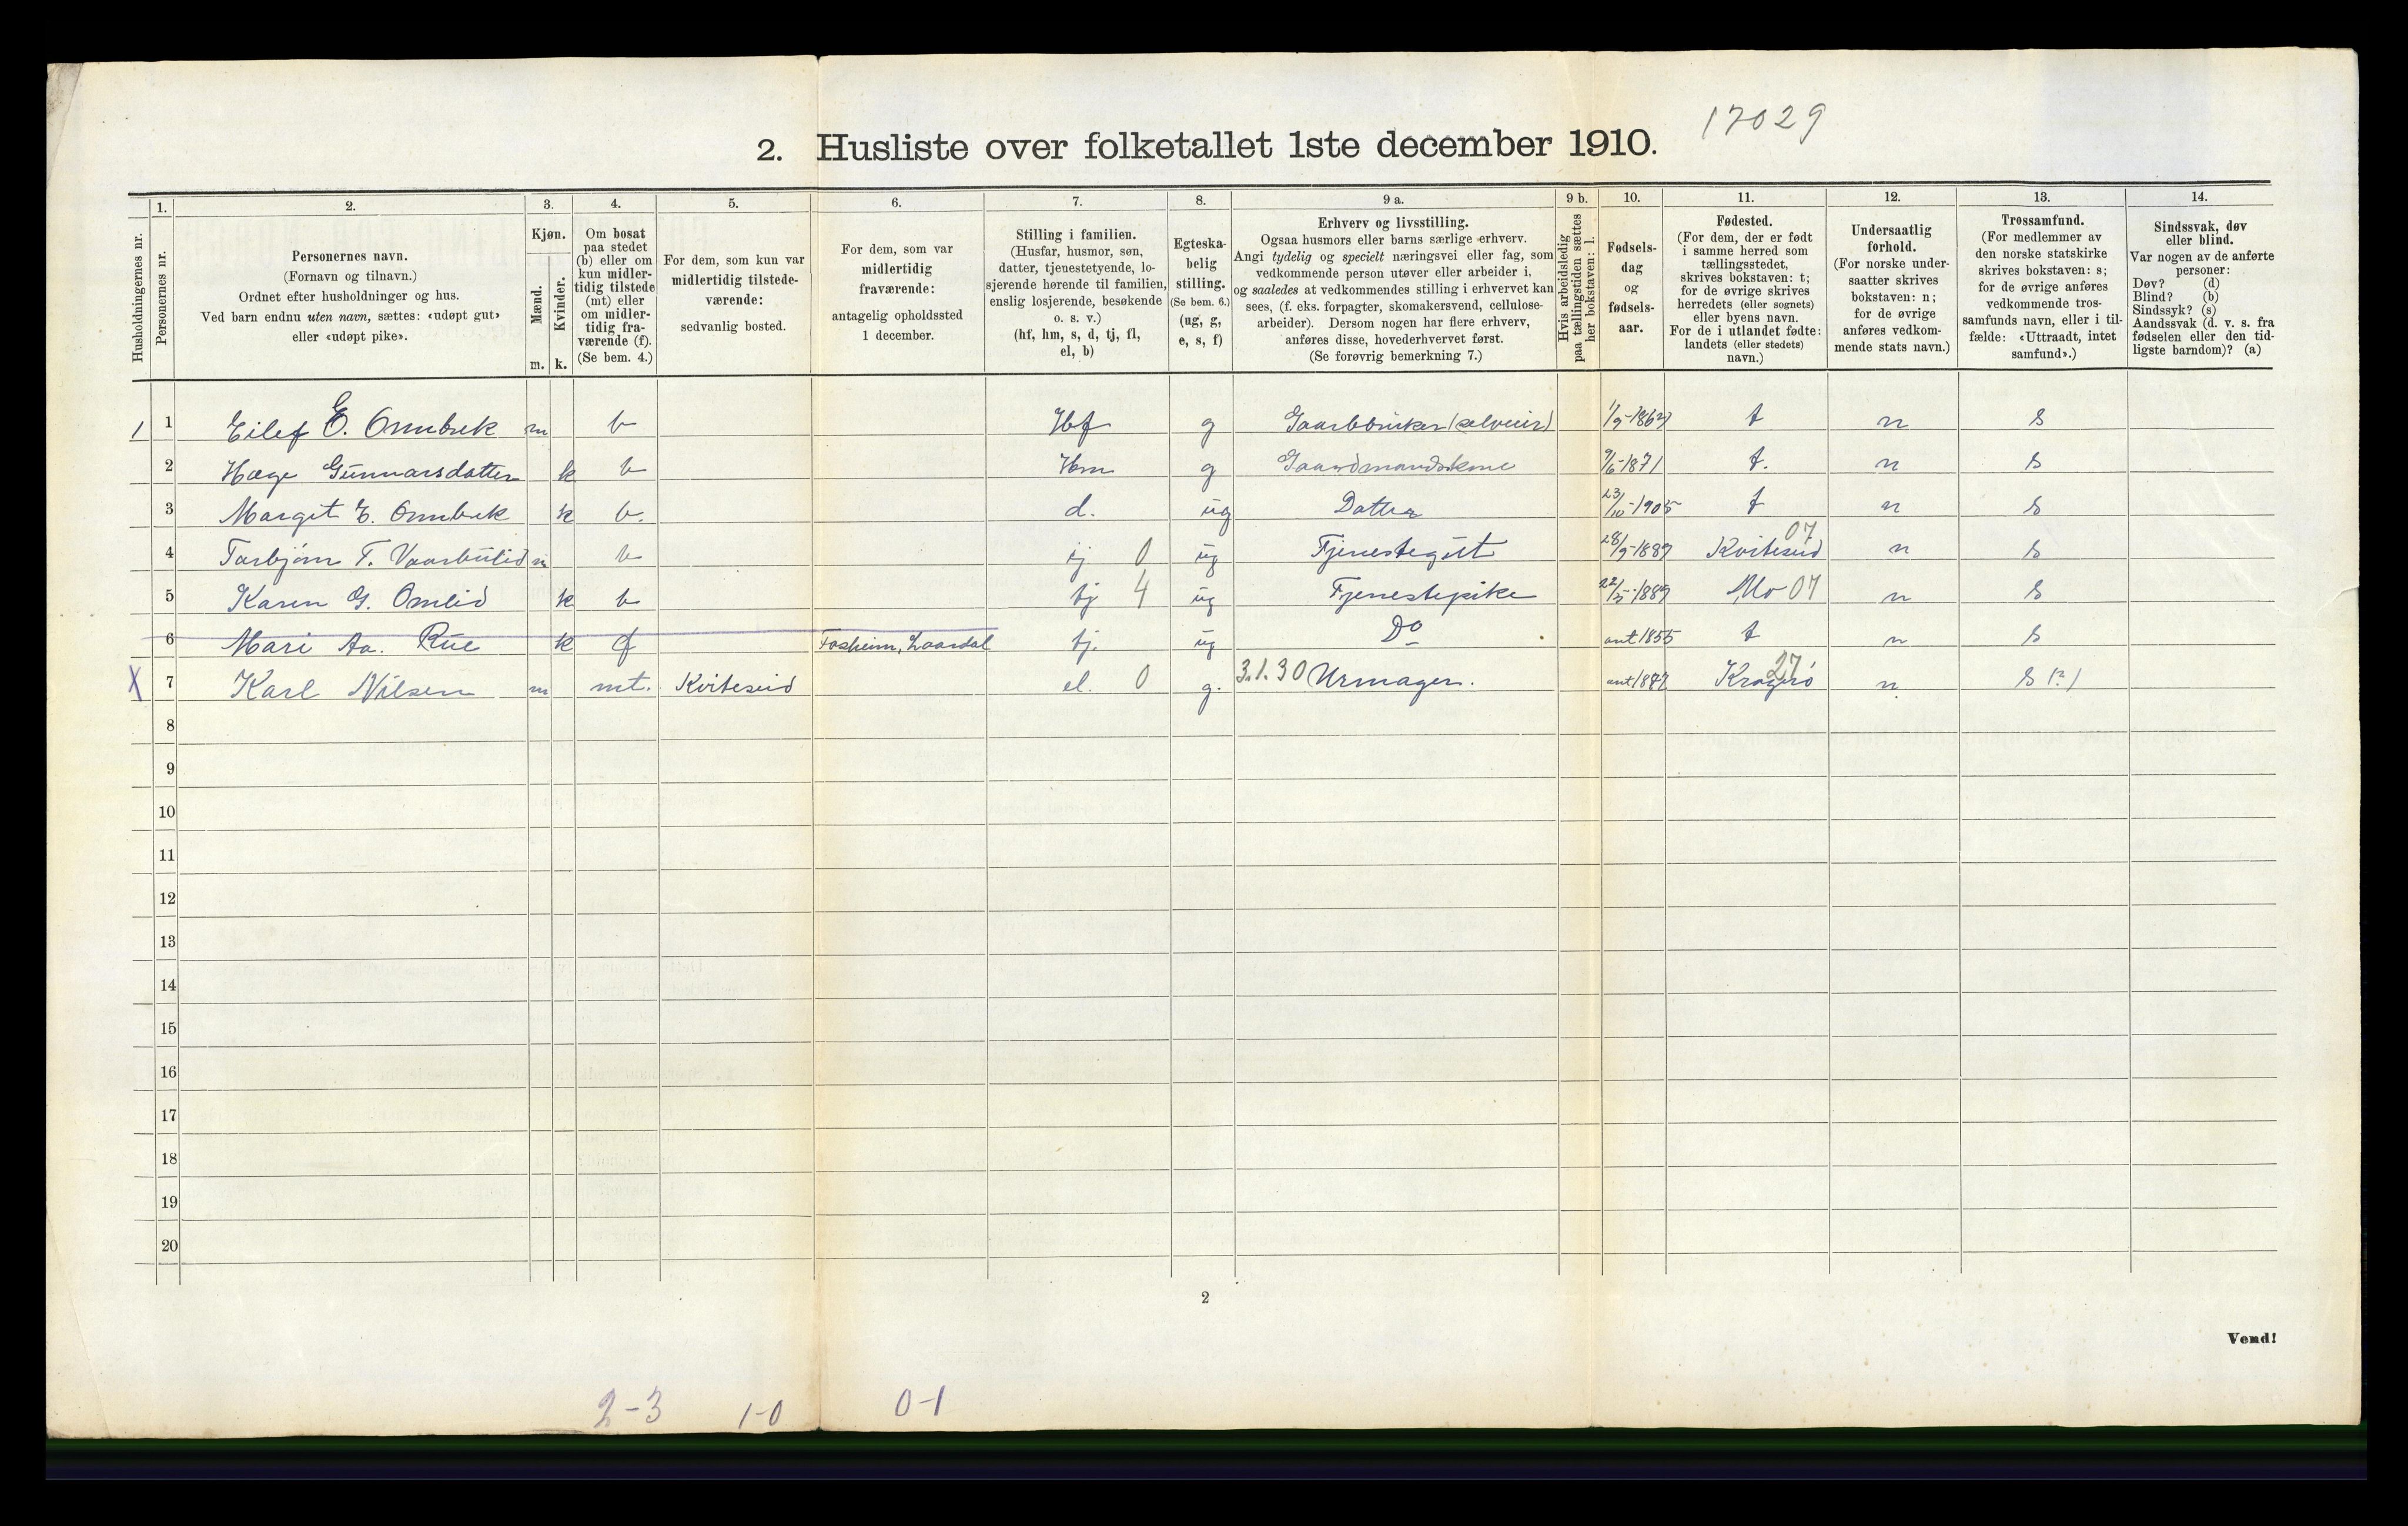 17029
2. Husliste over folketallet 1ste december 1910.
Husholdningernes nr.
1.
Personernes nr.
2.
Personernes navn.
(Fornavn og tilnavn.)
Ordnet efter husholdninger og hus.
Ved barn endnu uten navn, sættes: «udøpt gut»
eller «udøpt pike».
3.
Kjøn.
Mænd.
Kvinder.
m. k.
4.
Om bosat
paa stedet
(b) eller om
kun midler-
tidig tilstede
(mt) eller
om midler-
tidig fra-
værende (f).
(Se bem. 4.)
5.
For dem, som kun var
midlertidig tilstede-
værende:
sedvanlig bosted.
6.
For dem, som var
midlertidig
fraværende:
antagelig opholdssted
1 december.
7.
Stilling i familien.
(Husfar, husmor, søn,
datter, tjenestetyende, lo-
sjerende hørende til familien,
enslig losjerende, besøkende
o. s. v.)
(hf, hm, s, d, tj, fl,
el, b)
8.
Egteska-
belig
stilling.
(Se bem. 6.)
(ug, g,
e, s, f)
9 a.
Erhverv og livsstilling.
Ogsaa husmors eller barns særlige erhverv.
Angi tydelig og specielt næringsvei eller fag, som
vedkommende person utøver eller arbeider i,
og saaledes at vedkommendes stilling i erhvervet kan
sees, (f. eks. forpagter, skomakersvend, cellulose-
arbeider). Dersom nogen har flere erhverv,
anføres disse, hovederhvervet først.
(Se forøvrig bemerkning 7.)
9 b.
Hvis arbeidsledig
paa tællingstiden sættes
her bokstaven: l.
10.
Fødsels-
dag
og
fødsels-
aar.
11.
Fødested.
(For dem, der er født
i samme herred som
tællingsstedet,
skrives bokstaven: t;
for de øvrige skrives
herredets (eller sognets)
eller byens navn.
For de i utlandet fødte:
landets (eller stedets)
navn.)
12.
Undersaatlig
forhold.
(For norske under-
saatter skrives
bokstaven: n;
for de øvrige
anføres vedkom-
mende stats navn.)
13.
Trossamfund.
(For medlemmer av
den norske statskirke
skrives bokstaven: s;
for de øvrige anføres
vedkommende tros-
samfunds navn, eller i til-
fælde: «Uttraadt, intet
samfund».)
14.
Sindssvak, døv
eller blind.
Var nogen av de anførte
personer:
Døv? (d)
Blind? (b)
Sindssyk? (s)
Aandssvak (d. v. s. fra
fødselen eller den tid-
ligste barndom)? (a)
1 1 Eilef E. Omnbrek m b Hf g t n s
2 Hæge Gunnarsdatter k b Hm g Gaardmandskone 9/6-1871 t. n s
3 Margit E. Omnbrek k b. d. ug Datter 23/10-1905 t n s
4 m b tj 0 ug Tjenestegut 28/9-1889 Kviteseid 07 n s
5 Karen G. Omlid k b tj 4 ug Tjenestepike 22/5-1889 Mo 07 n s
6 Mari Aa. Rue k f Fosheim, Laardal tj. ug Do ant 1855 t n s
X 7 Karl Nilsen m mt. Kviteseid el. 0 g. 3.1.30 Urmager. Kragerø 27 n s (?)
8
9
10
11
12
13
14
15
16
17
18
19
20
2
Vend!
2-3 1-0 0-1